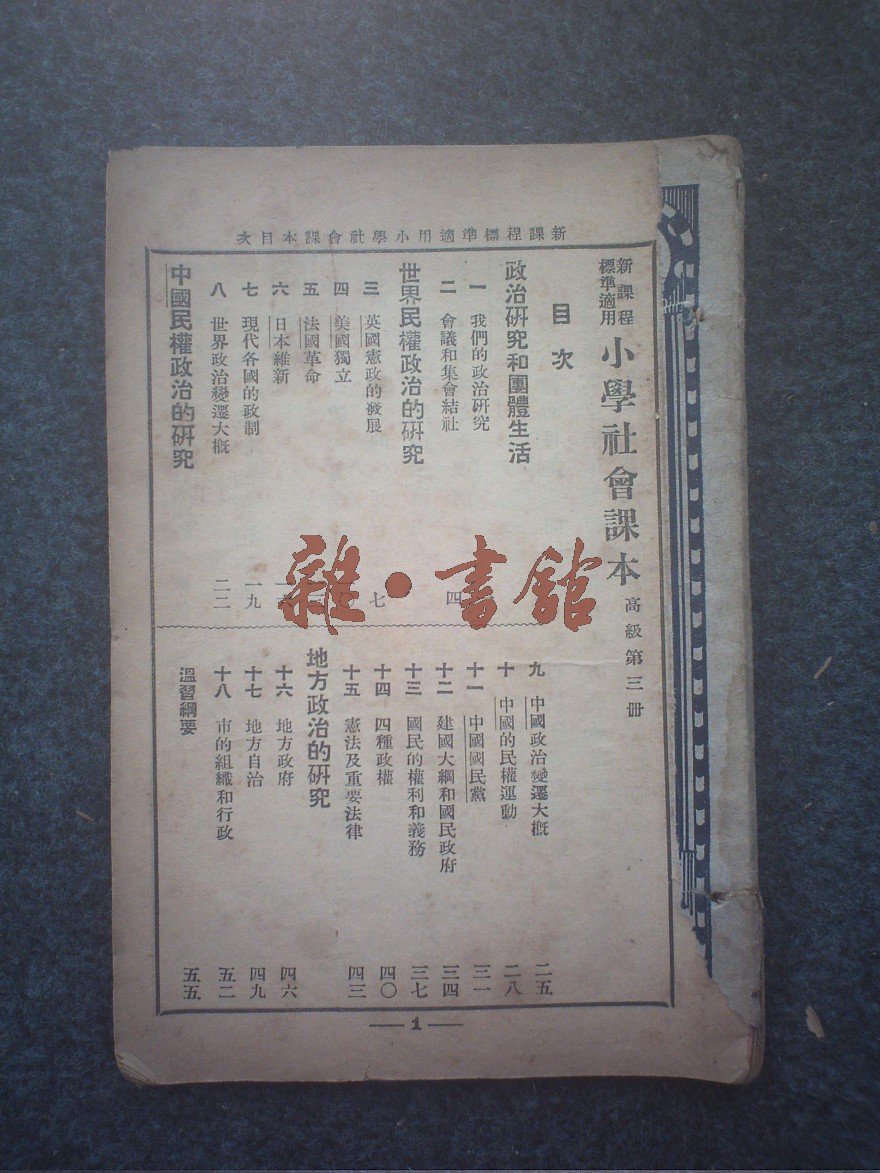 新課程標準適用小學社會課本目次
新課程
標準適用
小學社會課本 高級第三冊
目次
政治研究和團體生活
一 我們的政治研究
二 會議和集會結社 四
世界民權政治的研究
三 英國憲政的發展 七
四 美國獨立
五 法國革命
六 日本維新
七 現代各國的政制 一九
八 世界政治變遷大概 二二
中國民權政治的研究
九 中國政治變遷大概 二五
十 中國的民權運動 二八
十一 中國國民黨 三一
十二 建國大綱和國民政府 三四
十三 國民的權利和義務 三七
十四 四種政權 四〇
十五 憲法及重要法律 四三
地方政治的研究
十六 地方政府 四六
十七 地方自治 四九
十八 市的組織和行政 五二
溫習綱要 五五
1
雜·書館